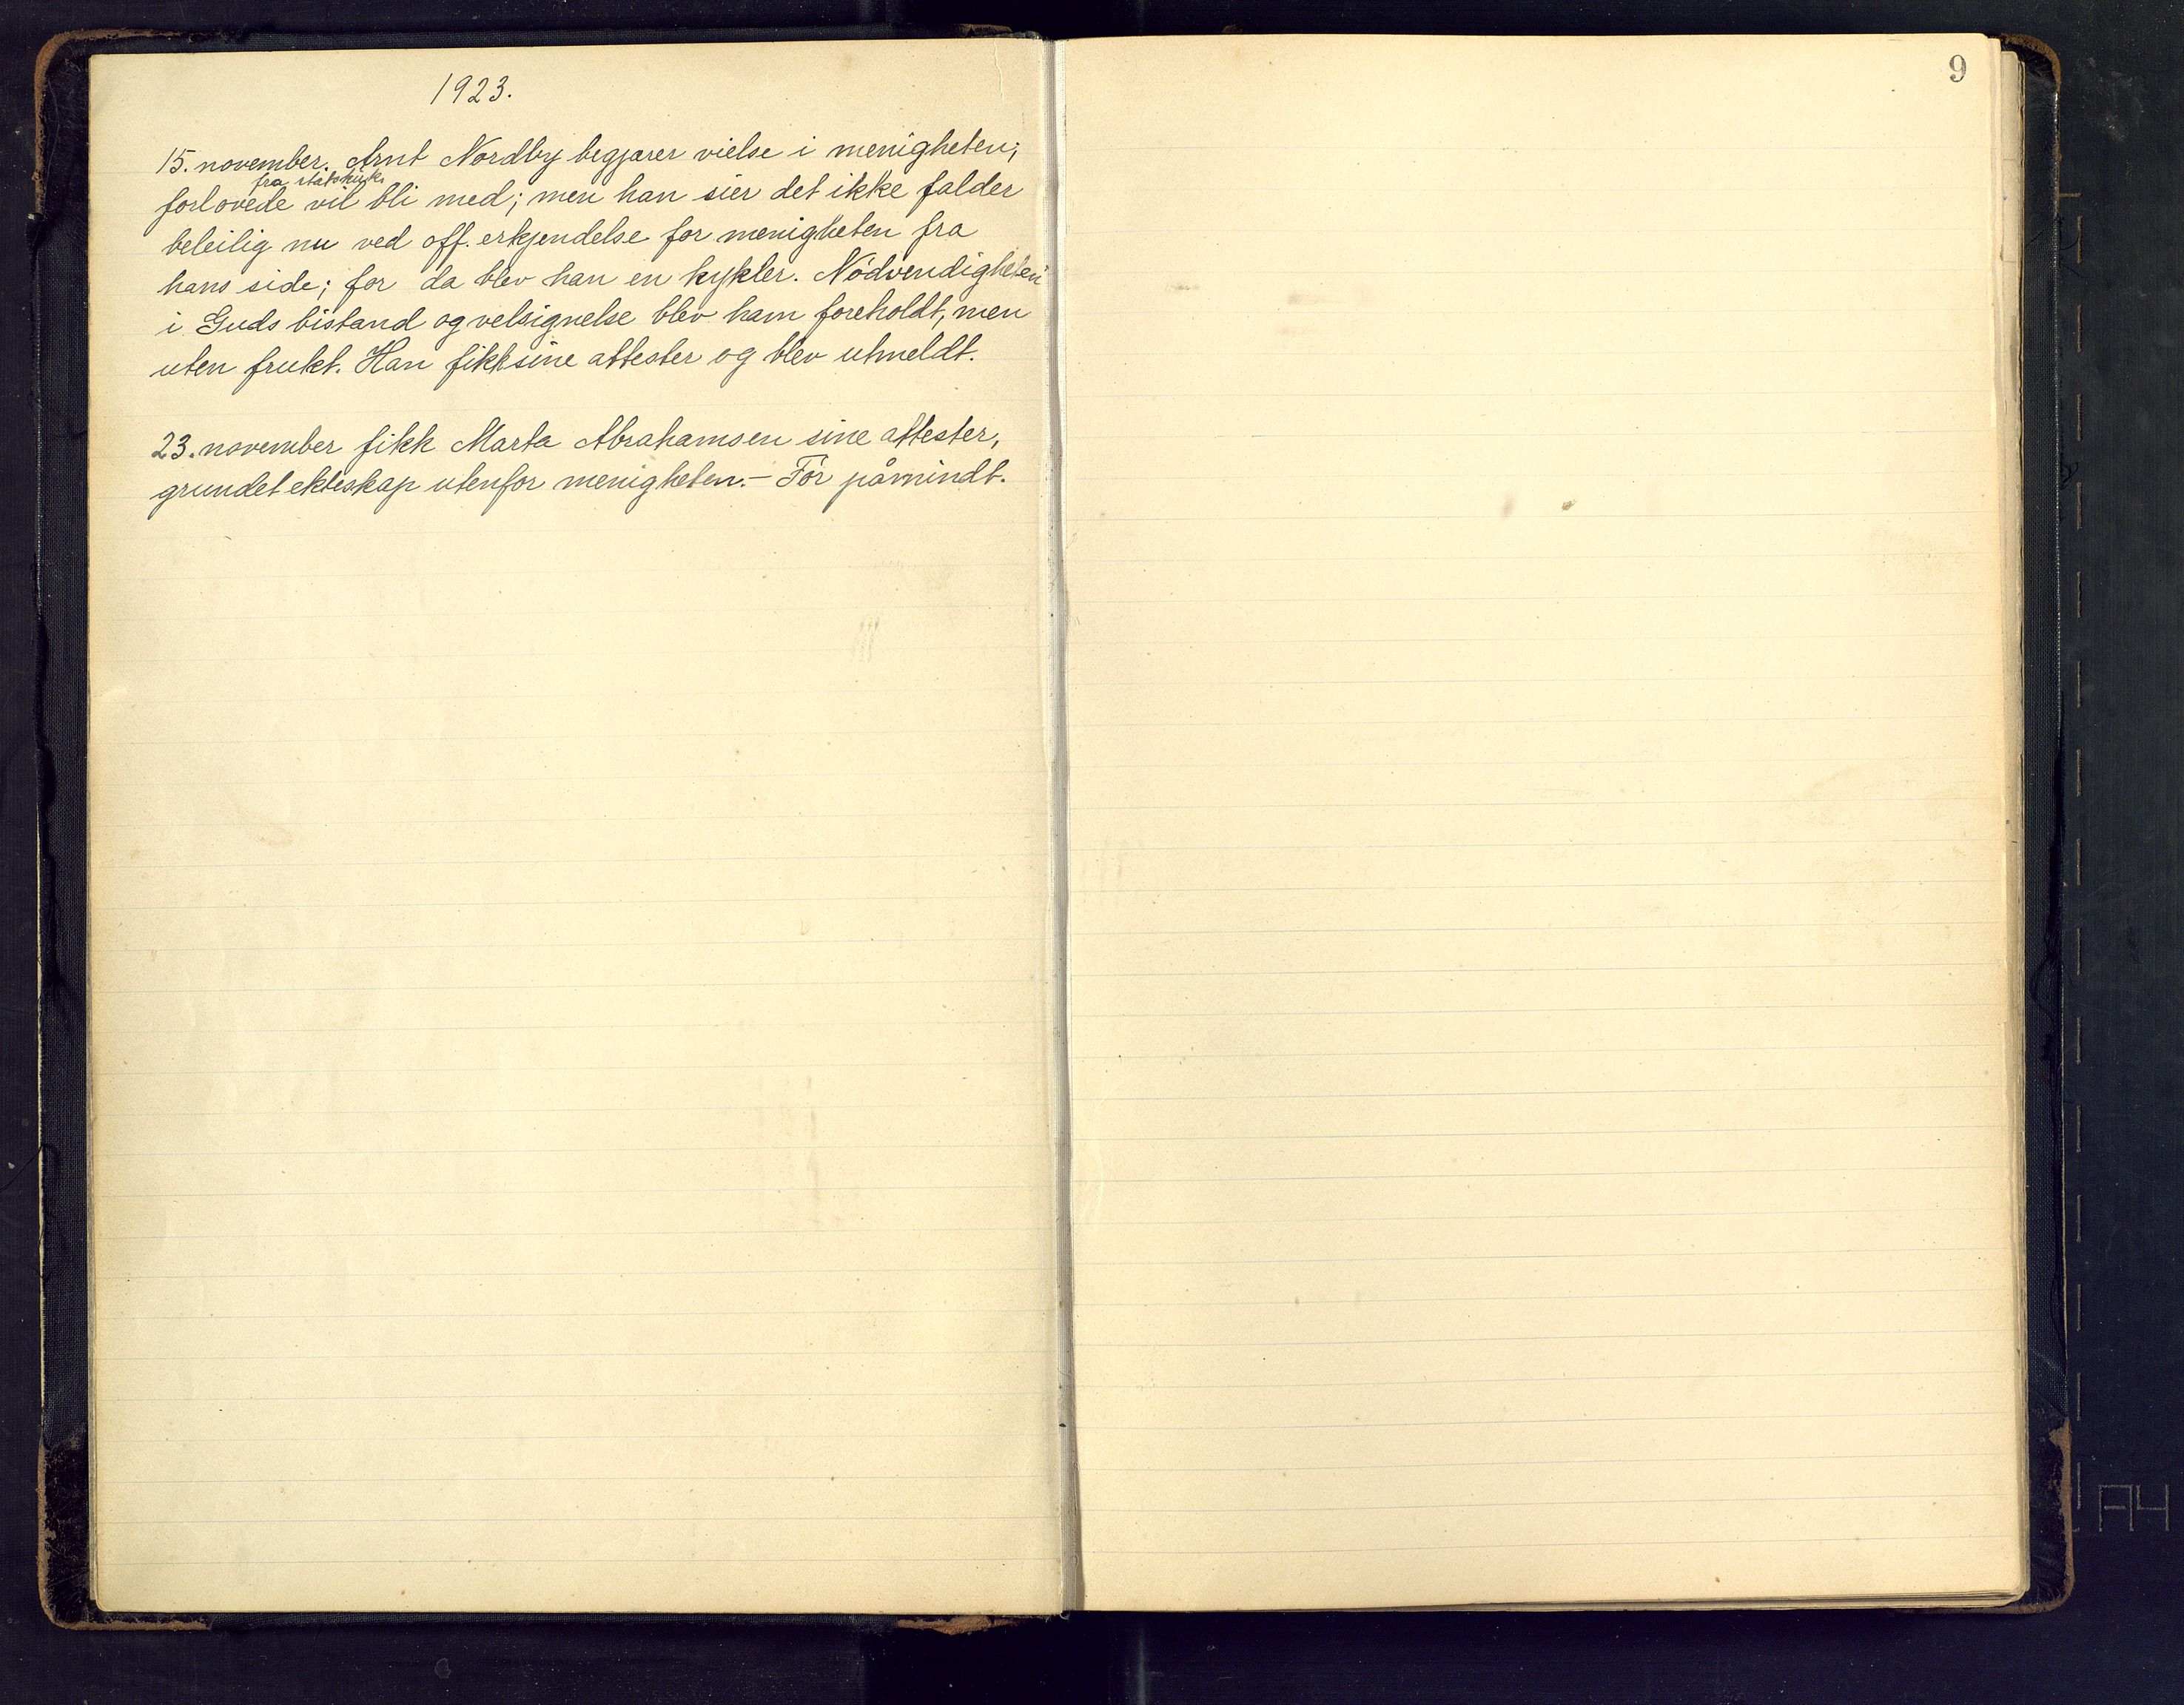 1923.
15. november. Arnt Nordby begjærer vielse i menigheten;
fra statskirk.
forlovede vil bli med; men han sier det ikke falder
beleilig nu ved off. erkjendelse for menigheten fra
hans side; for da blev han en hykler. Nödvendigheten
i Guds bistand og velsignelse blev ham foreholdt, men
uten frukt. Han fikk sine attester og blev utmeldt.
23. november fikk Marta Abrahamsen sine attester,
grundet ekteskap utenfor menigheten. – Før påmindt.
9